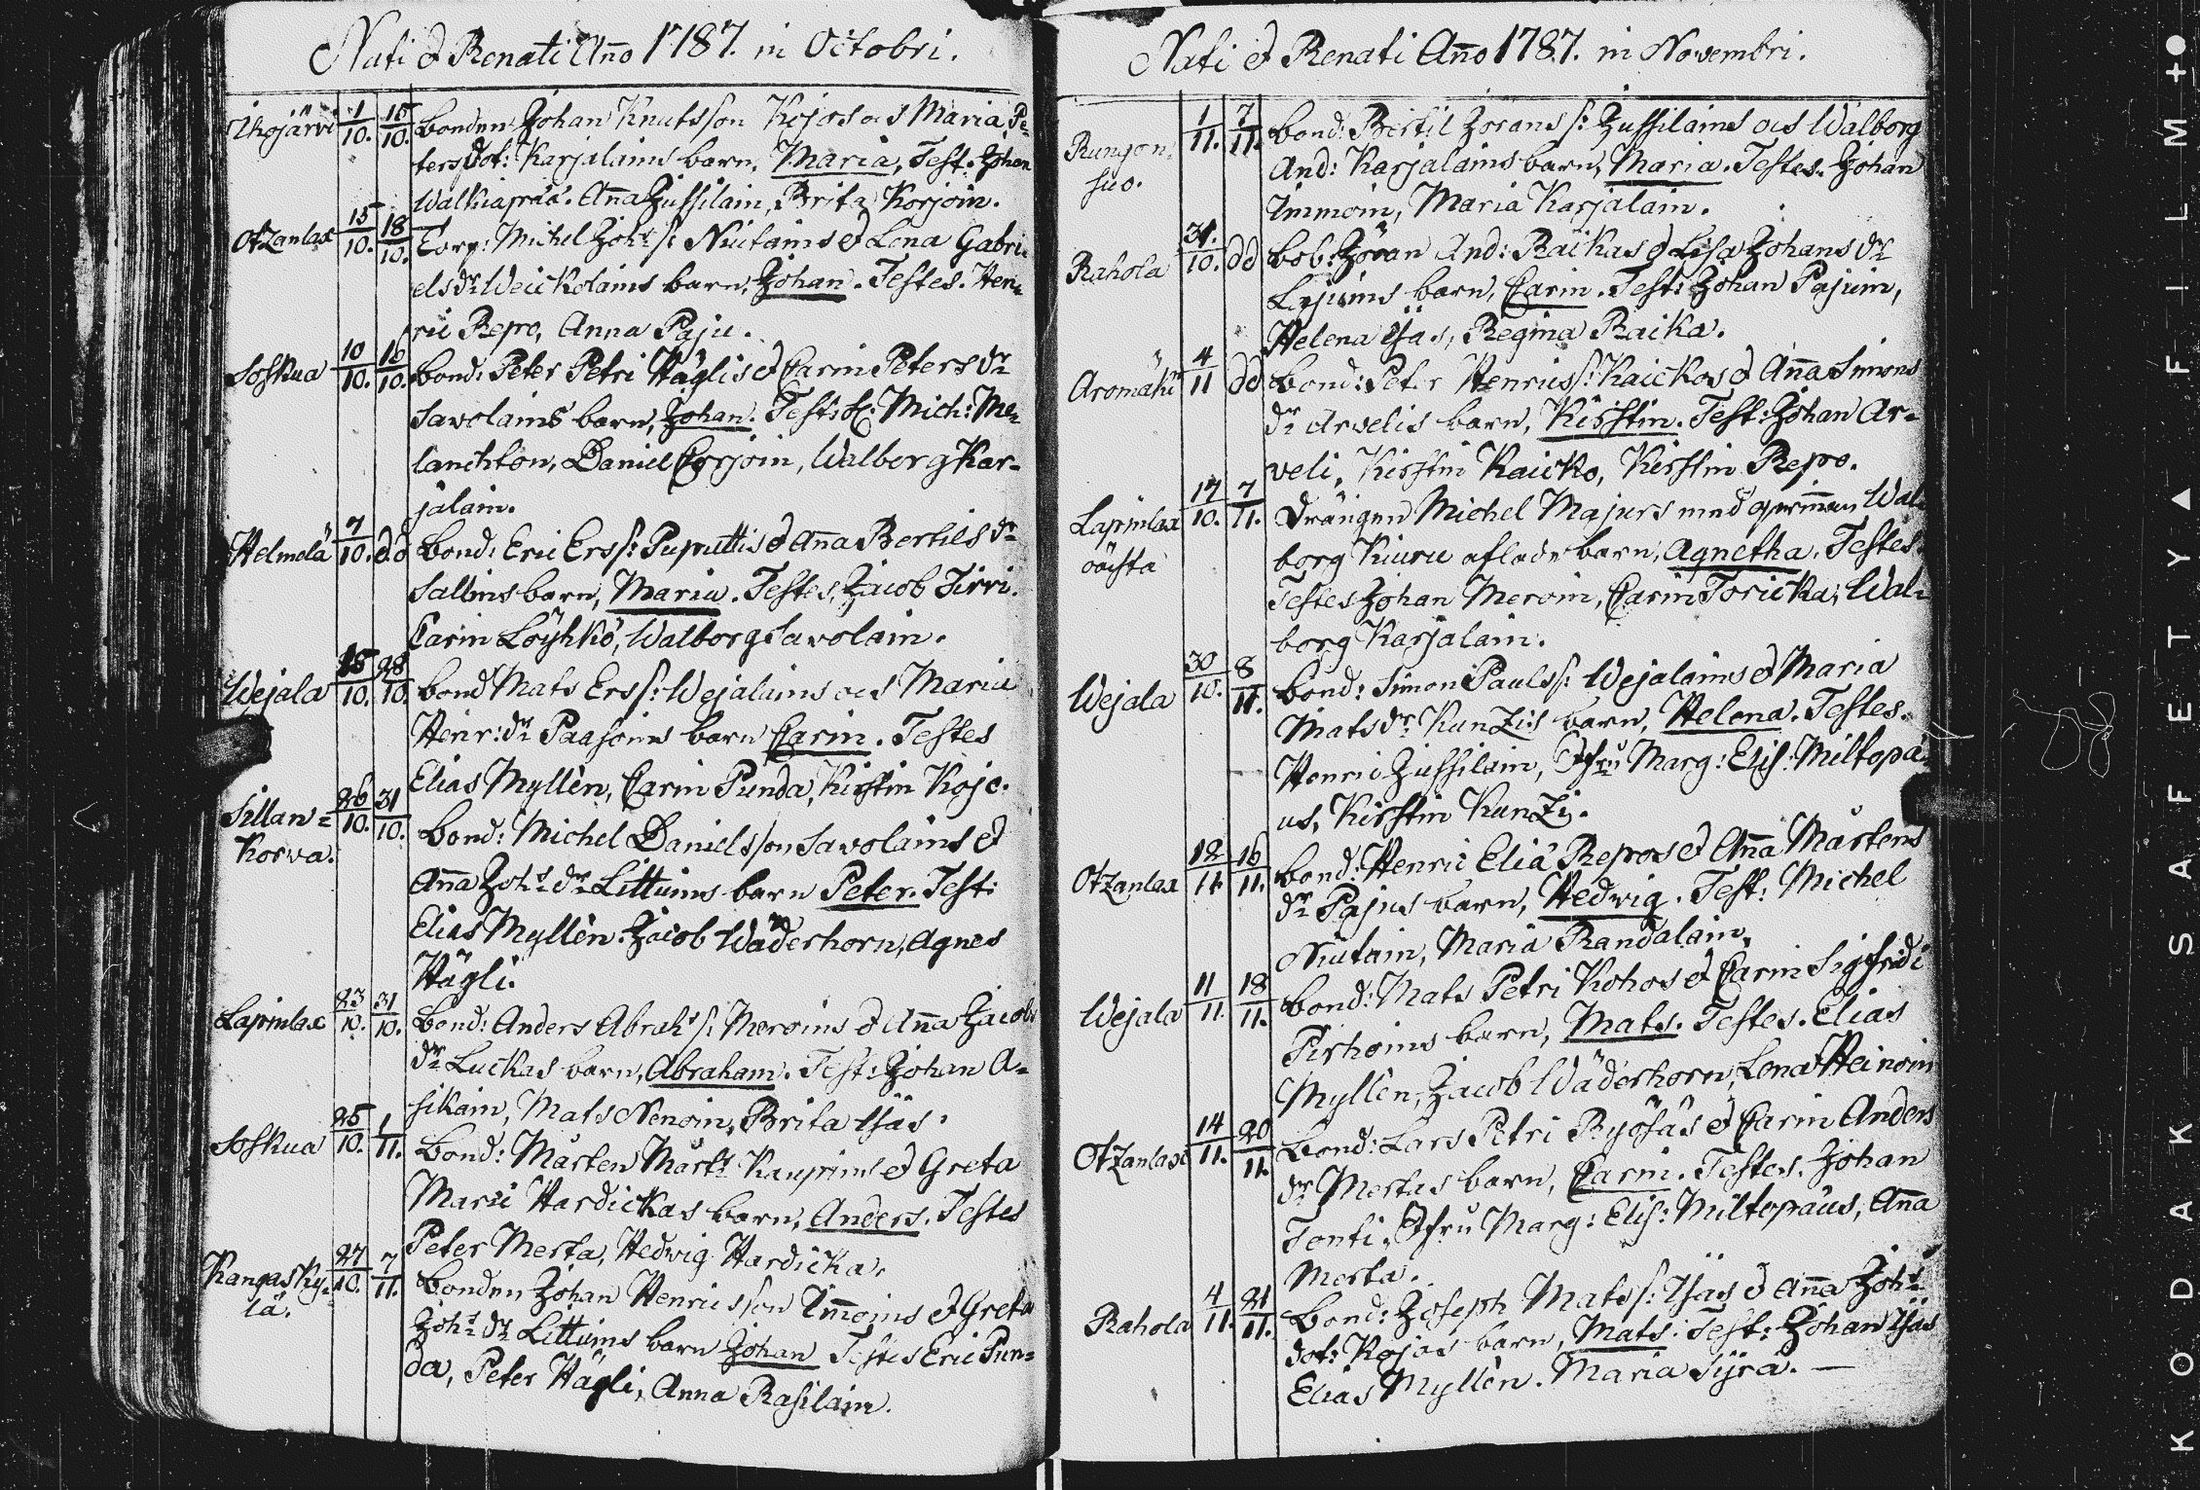 Nati & Renati Año 1787. in Octobri.
Ikojärvi 1/10. 15/10. Bonden Johan Knutsson Kojos och Maria Pe-
tersdot: Karjalains barn, Maria, Test. Johan
Walkiapää. Aña Jussilain, Brita Korjoin.
Otzanlax 15/10. 18/10. Torp: Michel Johs s: Niutains & Lena Gabri-
elsdr Weickolains barn, Johan. Testes. Hen-
ric Repo, Anna Paju.
Soskua 10/10. 16/10. Bond: Peter Petri Häglis & Carin Peters dr
Savolains barn, Johan. Test: St: Mich: Me-
lanchton, Daniel Corjoin, Walborg Kar-
jalain.
Helmelä 7/10. dd Bond: Eric Ers s: Puputtis & Aña Bertils dr
Sallins barn, Maria. Testes, Jacob Tirri.
Carin Löyhkö, Walborg Savolain.
Wejala 15/10. 28/10. Bond Mats Ers s: Wejalains och Maria
Henr: dr Paasoins barn Carin. Testes
Elias Myllèn, Carin Punda, Kirstin Kojo.
Sillan= 26/10. 31/10. Bond: Michel Danielsson Savolains &
Korva. Aña Johs dr Littuins barn Peter. Test:
Elias Myllèn. Jacob Wäderhorn, Agnes
Hägli.
Lapinlax 23/10. 31/10. Bond: Anders Abrahs s: Meroins & Aña Jacobs
dr Luckas barn, Abraham. Test: Johan A-
sikain, Mats Nenoin, Brita Isäs.
Soskua 25/10. 1/11. Bond: Mårten Mårts Kaupins & Greta
Marii Hardickas barn, Anders. Testes
Peter Merta, Hedwig Hardicka.
Kangasky= 27/10. 7/11. Bonden Johan Henricsson Immoins & Greta
lä. Johs dr Littuins barn Johan Testes Eric Pun=
da, Peter Hägli, Anna Rasilain.
Nati & Renati Año 1787. in Novembri.
Rungon- 1/11. 7/11. Bond: Bertil Jorans s: Jussilains och Walborg
suo. And: Karjalains barn, Maria. Testes. Johan
Immoin, Maria Karjalain.
Rahola 31./10. dd Bob: Jöran And: Raikas & Lisa Johans dr
Lyjuins barn, Carin. Test: Johan Pajuin,
Helena Isäs, Regina Raika.
Aromäki 4/11 dd Bond: Peter Henrics s: Kaickos & Aña Simons
dr Arvelis barn, Kirstin. Test: Johan Ar-
veli, Kirstin Kaicko, Kerstin Repo.
Lapinlax 17/10. 7/11. Drängen Michel Majurs med qwiñan Wal-
oäcta borg Kiuru aflade barn, Agnetha. Testes.
Testes Johan Meroin, Carin Toricka, Wal-
borg Karjalain.
Wejala 30/10. 8/11. Bond: Simon Pauls s: Wejalains & Maria
Mats dr Kunzis barn, Helena. Testes.
Henric Jussilain, Jfru Marg: Elis: Miltopä-
us, Kirstin Kunzi.
Otzanlax 12/11. 16/11. Bond: Henric Eliä Repos & Aña Mårtens
dr Pajus barn, Hedwig. Test: Michel
Niutain, Maria Randalain.
Wejala 11/11. 18/11. Bond: Mats Petri Kohos & Carin Sigfridi
Pirhoins barn, Mats. Testes. Elias
Myllèn, Jacob Wäderhorn, Lena Heinoin
Otzanlax 14/11. 20/11. Bond: Lars Petri Ryösäs & Carin Anders
dr Mertas barn, Carin. Testes. Johan
Tonti, Jfru Marg: Elis: Miltopäus, Aña
Merta.
Rahola 4/11. 21/11. Bond: Joseph Mats s: Isäs & Aña Johs
dot: Kojos barn, Mats. Test: Johan Isäs
Elias Myllèn. Maria Syra. —
KODAK – SAFETY ▲ FILM